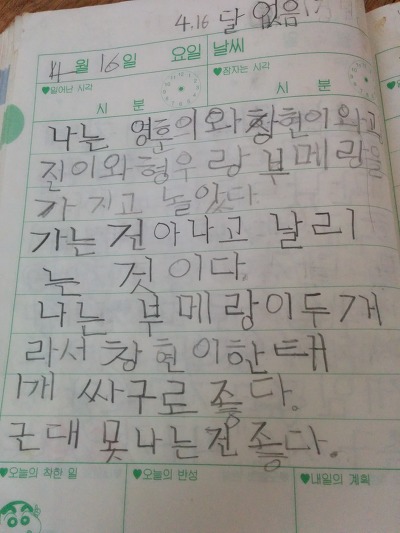 4.16 달 없음
4월 16일 요일 날씨
♥일어난 시각 ♥잠자는 시각
시 분 시 분
나는 영훈이와 창현이와
진이와 형우랑 부메랑을
가지고 놀았다.
가는 건아나고 날리
는 것이다.
나는 부메랑이두개
라서 창현이한태
1개 싸구로 줐다.
근대 못나는건줐다.
♥오늘의 착한 일 ♥오늘의 반성 ♥내일의 계획